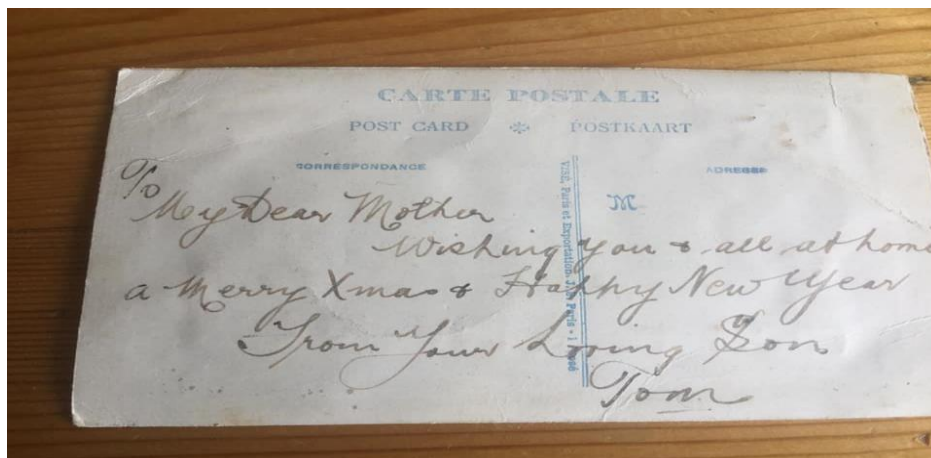 CARTE POSTALE
POST CARD * POSTKAART
CORRESPONDANCE
ADRESSE
M
To
My Dear Mother
Wishing you & all at home
a Merry Xmas & Happy New Year
From Your Loving Son
Tom
Visé, Paris et Exportation. Paris